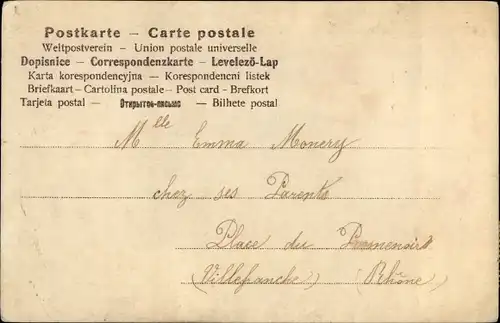 Postkarte – Carte postale
Weltpostverein – Union postale universelle
Dopisnice – Correspondenzkarte – Levelező-Lap
Karta korespondencyjna – Korespondencni listek
Briefkaart – Cartolina postale – Post card – Brefkort
Tarjeta postal — Открытое-письмо — Bilhete postal
Mlle Emma Monery
chez ses Parents
Place du Promenoir
(Villefranche) (Rhône)